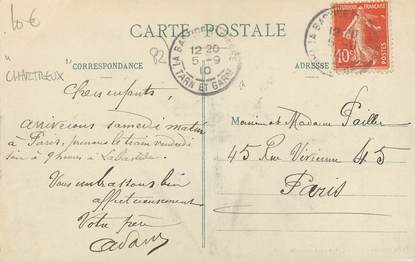 10-€
CHARTREUX
82
CARTE POSTALE
CORRESPONDANCE
ADRESSE
12 20
5 -9
10
TARN ET GARNE
FRANÇAISE
10c
POSTES
Chers enfants,
arriverons samedi matin
à Paris, prenons le train vendredi
soir à 9 heures à Labastide.
Vous embrassons bien
affectueusement
Votre père
Adam
Monsieur et Madame Paillier
45 Rue Vivienne 45
Paris